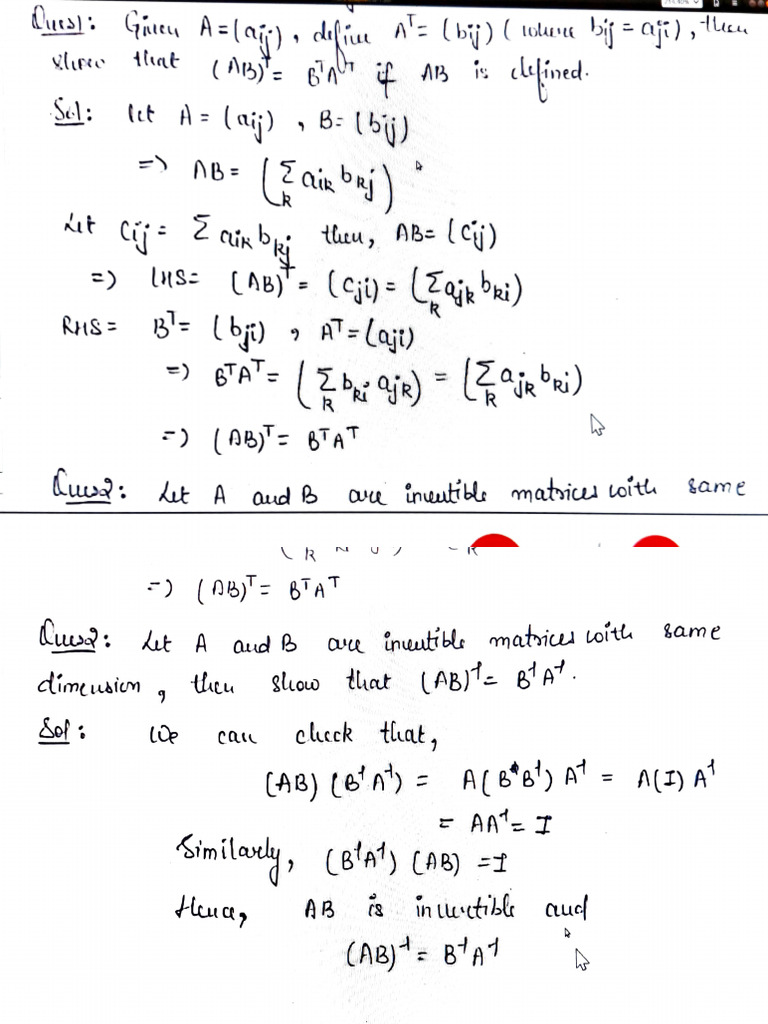 Ques1: Given A = (aij), define Aᵀ = (bij) (where bij = aji), then
show that (AB)ᵀ = BᵀAᵀ if AB is defined.
Sol: let A = (aij) , B = (bij)
=> AB = (Σ_k aik bkj)
Let Cij = Σ aik bkj then, AB = (Cij)
=> LHS = (AB)ᵀ = (Cji) = (Σ_k ajk bki)
RHS = Bᵀ = (bji) , Aᵀ = (aji)
=> BᵀAᵀ = (Σ_k bki ajk) = (Σ_k ajk bki)
=> (AB)ᵀ = BᵀAᵀ
Ques2: Let A and B are invertible matrices with same
=> (AB)ᵀ = BᵀAᵀ
Ques2: Let A and B are invertible matrices with same
dimension, then show that (AB)⁻¹ = B⁻¹A⁻¹.
Sol: We can check that,
(AB) (B⁻¹A⁻¹) = A(B B⁻¹) A⁻¹ = A(I) A⁻¹
= AA⁻¹ = I
Similarly, (B⁻¹A⁻¹) (AB) = I
Hence, AB is invertible and
(AB)⁻¹ = B⁻¹A⁻¹